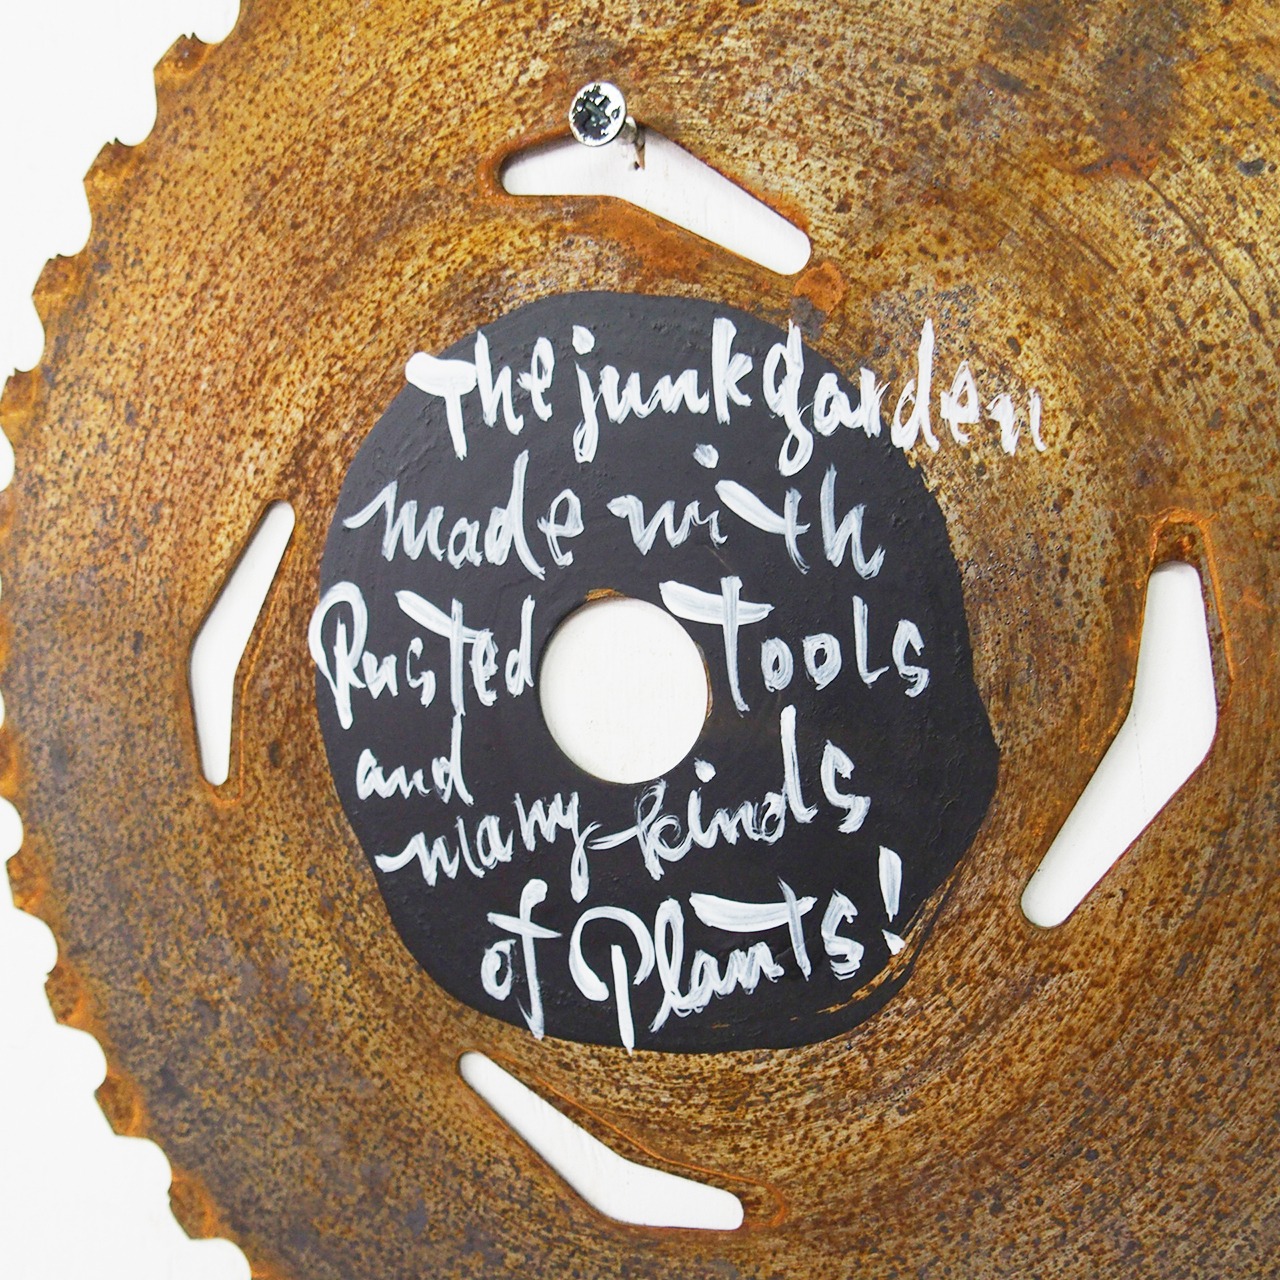 The junk garden
made with
Rusted Tools
and
many kinds
of Plants!